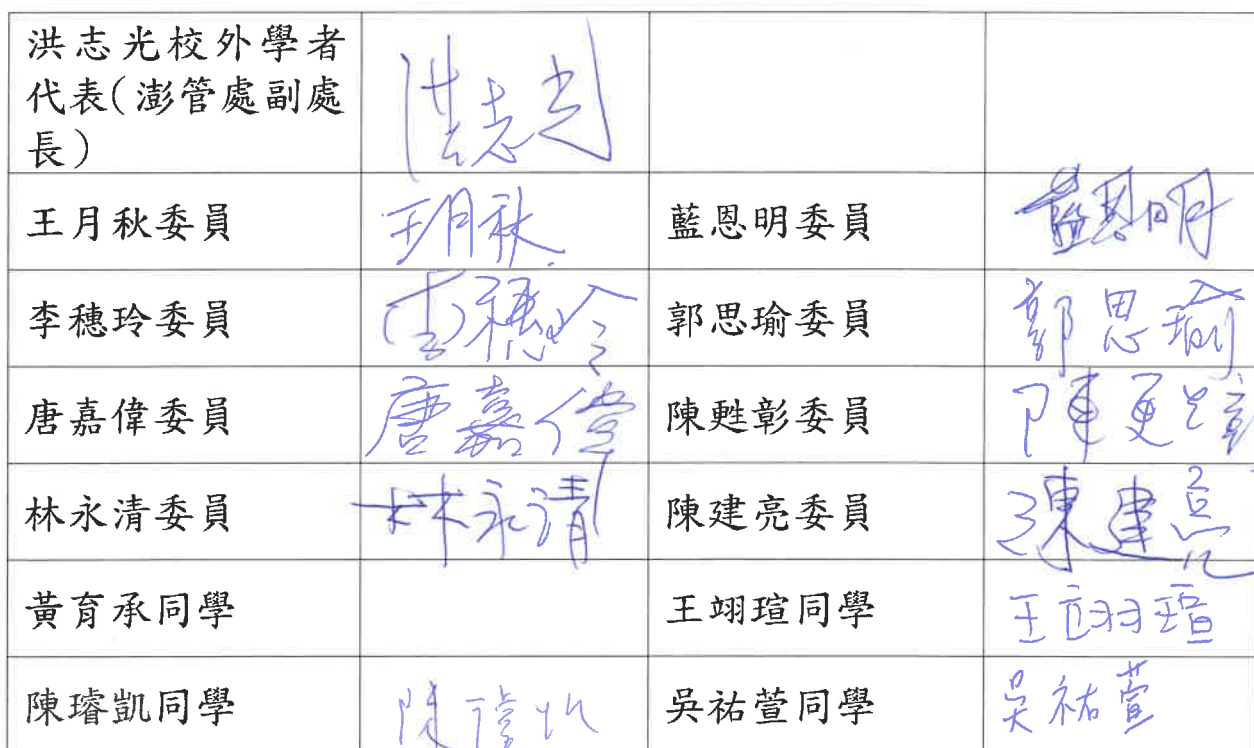 洪志光校外學者
代表(澎管處副處
長)
洪志光
王月秋委員
王月秋
藍恩明委員
藍恩明
李穗玲委員
李穗玲
郭思瑜委員
郭思瑜
唐嘉偉委員
唐嘉偉
陳甦彰委員
陳甦彰
林永清委員
林永清
陳建亮委員
陳建亮
黃育承同學
王翊瑄同學
王翊瑄
陳璿凱同學
陳璿凱
吳祐萱同學
吳祐萱